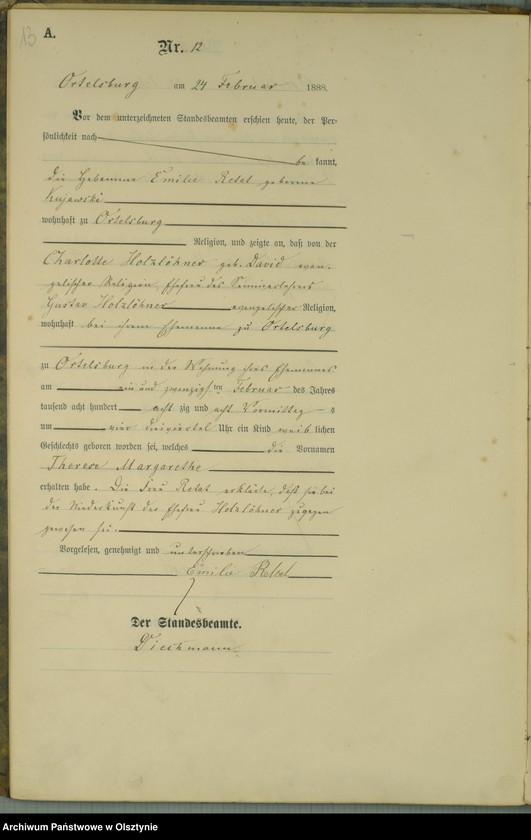 13
A.
Nr. 12
Ortelsburg am 24 Februar 1888.
Vor dem unterzeichneten Standesbeamten erschien heute, der Per-
sönlichkeit nach
be kannt,
die Hebamme Emilie Retat geborene
Kujawski
wohnhaft zu Ortelsburg
Religion, und zeigte an, daß von der
Charlotte Holzlöhner geb. David evan-
gelischer Religion, Ehefrau des Seminarlehrers
Gustav Holzlöhner evangelischer Religion,
wohnhaft bei ihrem Ehemanne zu Ortelsburg
zu Ortelsburg in der Wohnung ihres Ehemannes
am ein und zwanzigsten Februar des Jahres
tausend acht hundert acht zig und acht Vormittags
um vier dreiviertel Uhr ein Kind weib lichen
Geschlechts geboren worden sei, welches die Vornamen
Therese Margarethe
erhalten habe. Die Frau Retat erklärte, daß sie bei
der Niederkunft der Ehefrau Holzlöhner zugegen
gewesen sei.
Vorgelesen, genehmigt und unterschrieben
Emilie Retat
Der Standesbeamte.
Archiwum Państwowe w Olsztynie